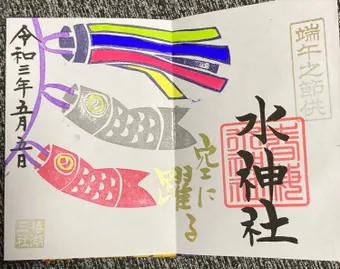 端午之節供
水神社
空に
躍る
令和三年五月五日